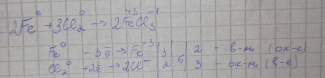 2Fe⁰ + 3Cl₂⁰ → 2Fe⁺³Cl₃⁻¹
Fe⁰ - 3ē → Fe⁺³ | 3 | 6 | 2 - в-ль (ок-е)
Cl₂⁰ + 2ē → 2Cl⁻ | 2 | 3 - ок-ль (в-е)